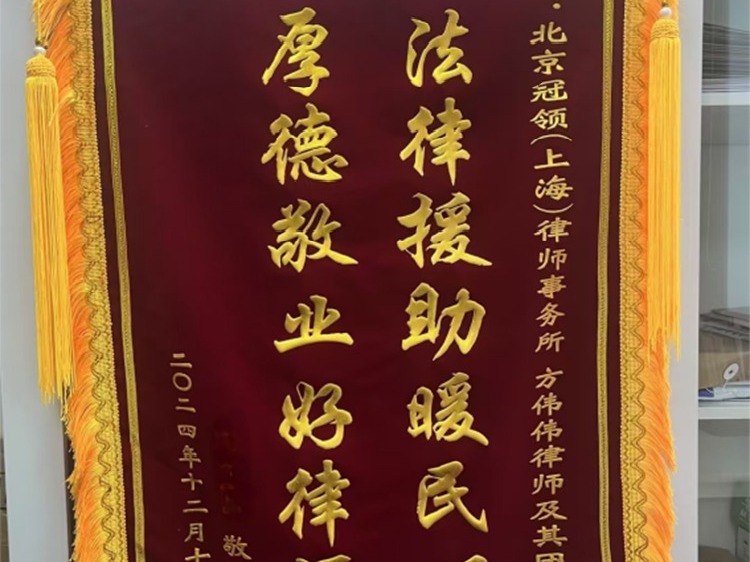 ·北京冠领(上海)律师事务所 方伟伟律师及其团
法律援助暖民
厚德敬业好律
敬
二〇二四年十二月十